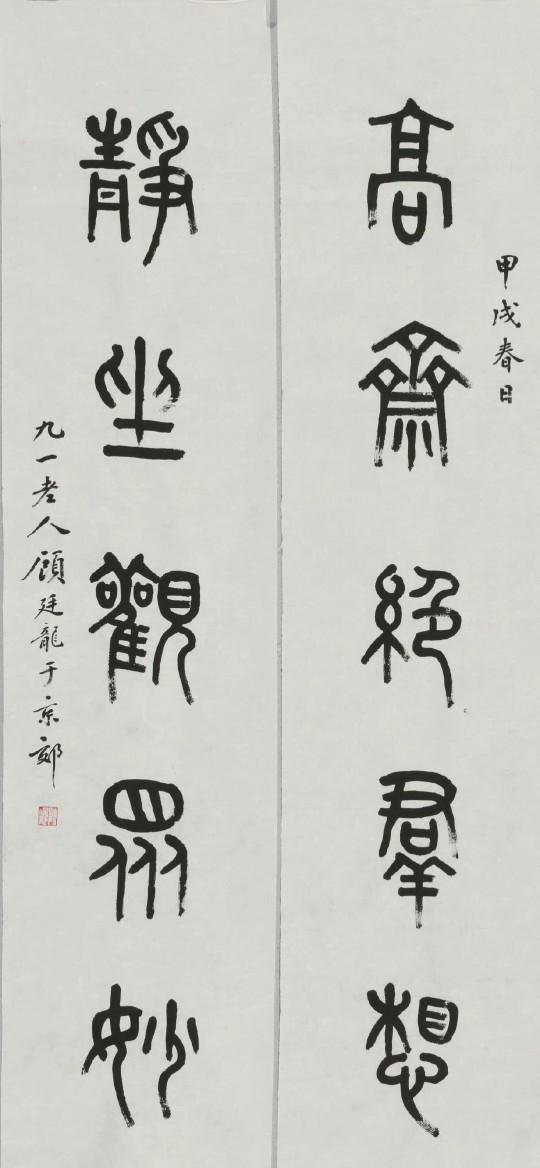 甲戌春日
高齋絕羣想
靜坐觀眾妙
九一老人顧廷龍于京郊